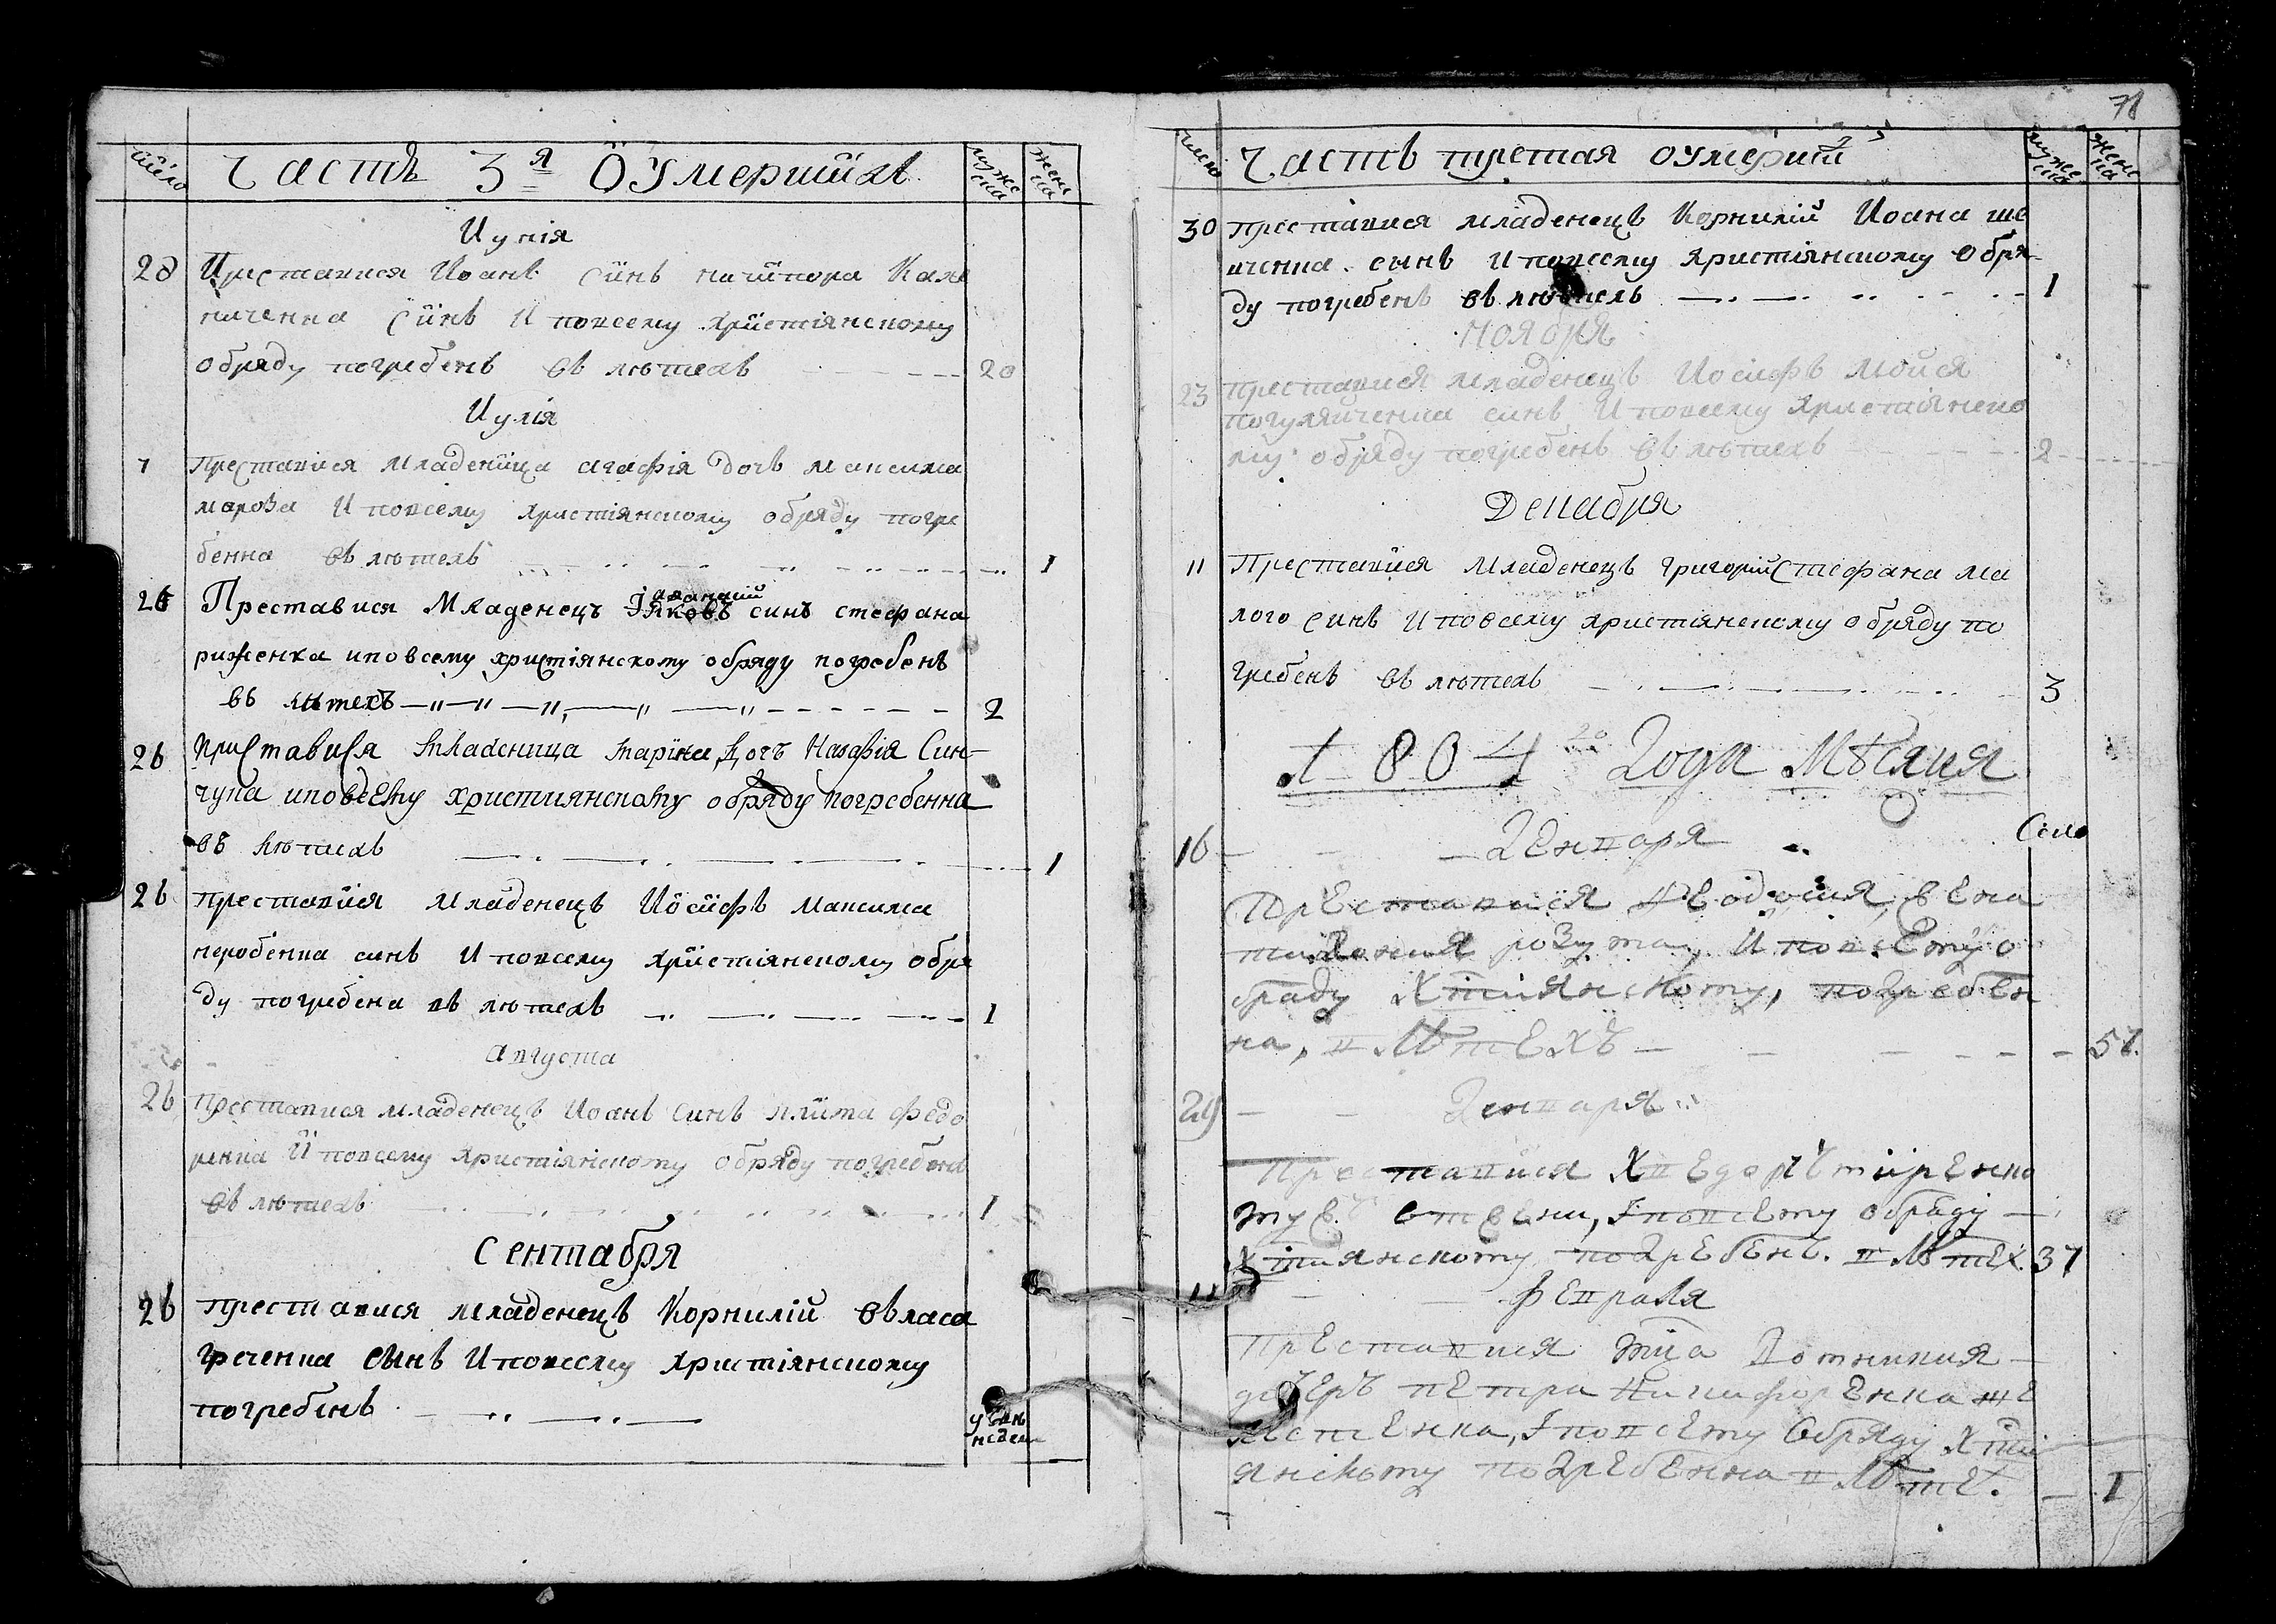 число
Часть 3я О Умерших
муже ска
жене ска
Иунія
28 Преставися Иоанъ синъ ничипора Каль
ниченка синъ И повсему христіянскому
обряду погребенъ въ лютехъ 20
Иулія
7 Преставися Младеница агафія дочъ максима
мороза И повсему христіянскому обряду погре
бенна въ лютехъ 1
26 Преставися Младенецъ афанасий синъ стефана
риженка иповсему христіянскому обряду погребенъ
въ лютехъ 2
26 преставися младеница марина дочъ Син-
чука иповсему християнскому обряду погребенна
въ лютехъ 1
26 преставися младенецъ Иосифъ максима
неробенка синъ И повсему христіянскому обря
ду погребена въ лютехъ 1
августа
26 преставися младенецъ Иоанъ синъ клима федо
ренка И повсему христіянскому обряду погребенъ
въ лютехъ 1
Сентабря
26 преставися младенецъ Корнилій власа
греченка сынъ И повсему христіянскому
погребенъ
недел
78
число
Часть третая оумерших
муже ска
жене ска
30 преставися младенецъ Корнилій Иоана ше
ченка сынъ И повсему христіянскому обря-
ду погребенъ въ 1
Ноября
23 преставися младенецъ Иосифъ мойся
синъ И повсему христіянско
му обряду погребенъ въ лютехъ 2
Декабря
11 Преставися младенецъ григорий Стефана ма
лого синъ И повсему христіянскому обряду по
гребенъ въ лютехъ 3
1804го Года Мѣсяця
16 Генваря
Преставися Феодосия жена
розума, И повсему о
браду Хтиянскому, погребен
на, в лѣтехъ 57
29 Генваря
Преставися Хведоръ
И повсему обряду
Хтиянскому погребенъ. в лѣтех 37
11 Февраля
Преставися мца Домникия
дочеръ петра Никифоренка
И повсему Обряду Хтии
янскому погребенна в лѣтех. 1